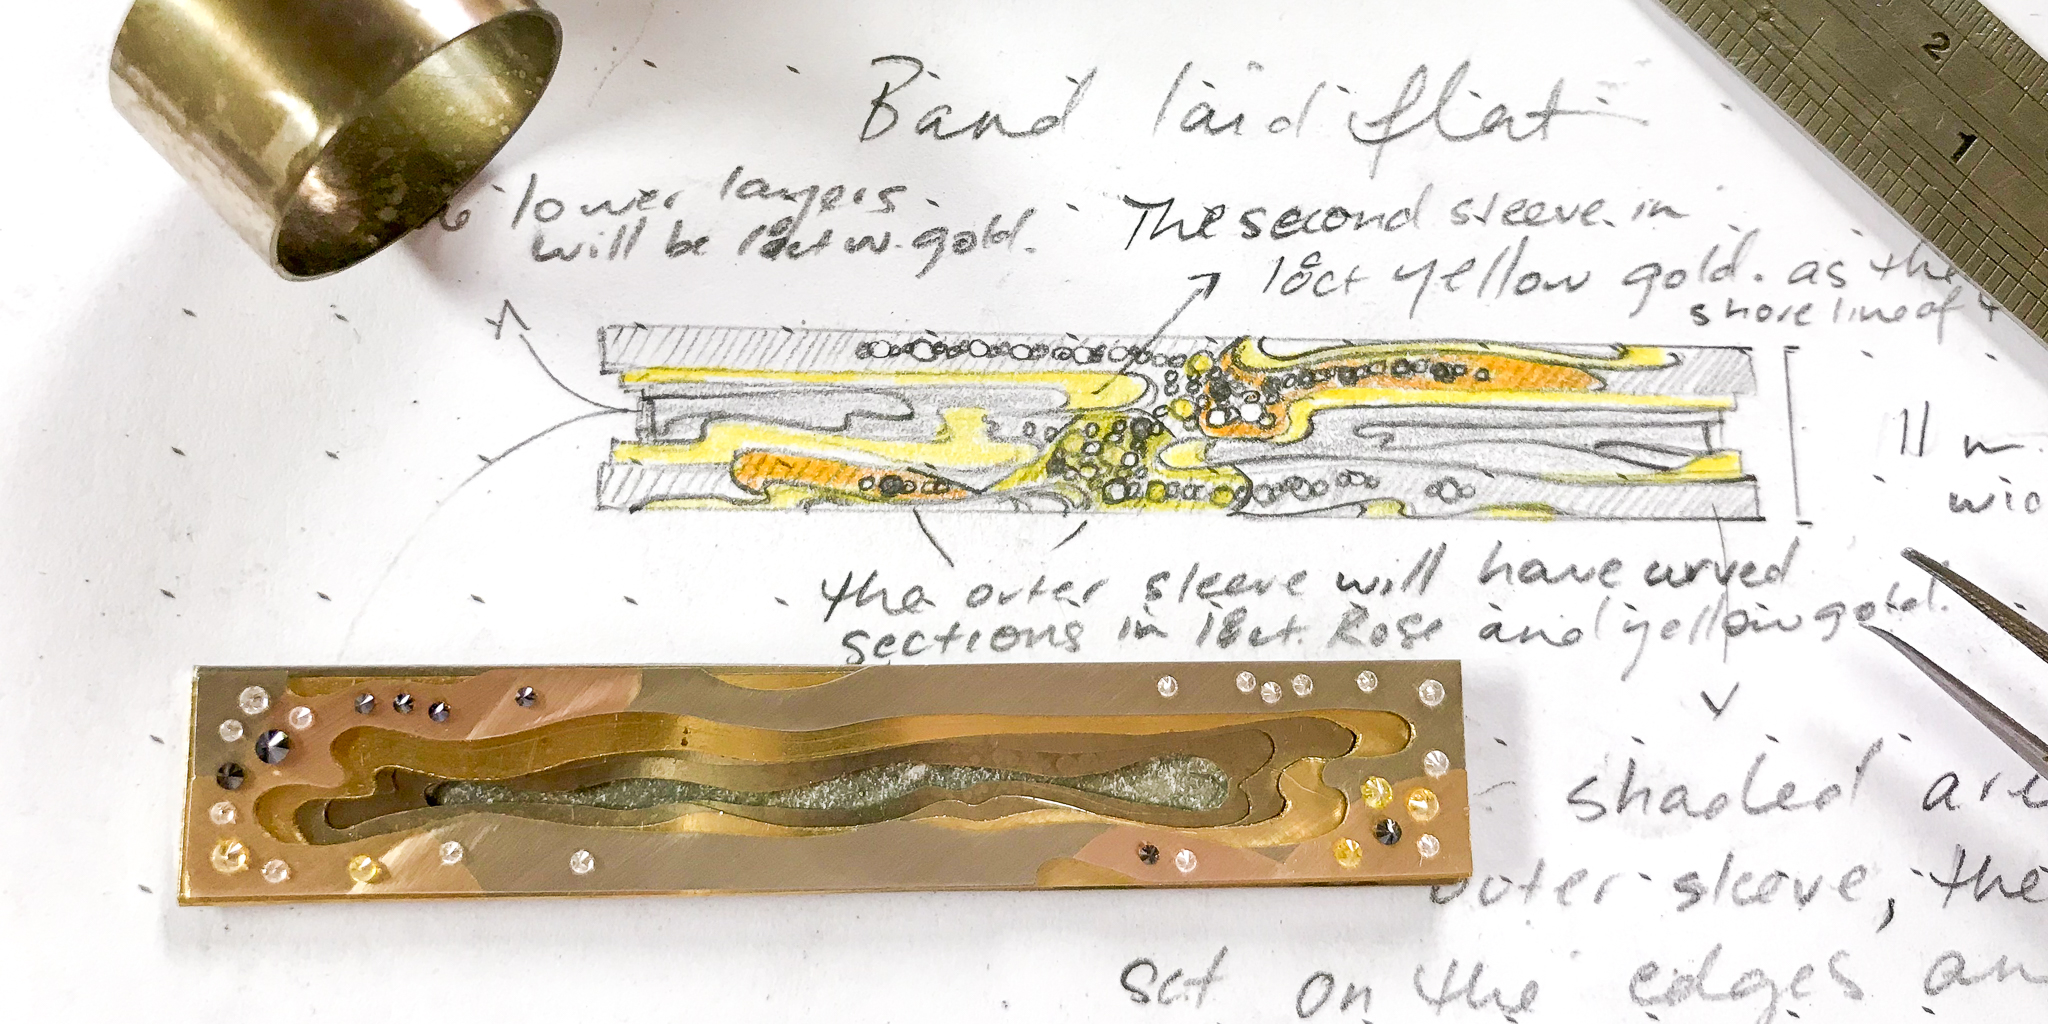 Band laid flat
lower layers.
will be 18ct w. gold.
The second sleeve in
18ct yellow gold. as the
shoreline of
11 m
wid
the outer sleeve will have curved
sections in 18ct. Rose and yellow gold.
shaded are
outer sleeve, the
set on the edges an
2
1